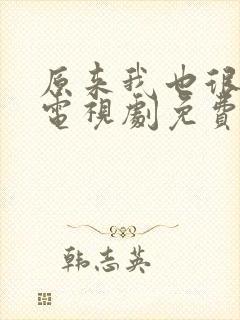 原来我也很
電視劇免費
韩志英